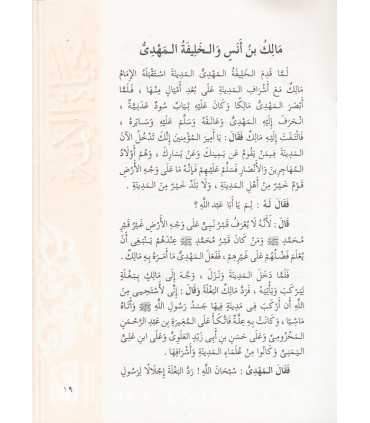 مَالِكُ بنُ أَنَسٍ وَالـخَلِيفَةُ الـمَهْدِيُّ
لَـمَّا قَدِمَ الخَلِيفَةُ المَهْدِيُّ المَدِينَةَ اسْتَقْبَلَهُ الإِمَامُ
مَالِكٌ مَعَ أَشْرَافِ المَدِينَةِ عَلَى بُعْدِ أَمْيَالٍ مِنْهَا ، فَلَمَّا
أَبْصَرَ المَهْدِيُّ مَالِكًا وَكَانَ عَلَيْهِ ثِيَابُ سُودٌ عَدَنِيَّةٌ ،
انْحَرَفَ إِلَيْهِ المَهْدِيُّ وَعَانَقَهُ وَسَلَّمَ عَلَيْهِ وَسَايَرَهُ ،
فَالْتَفَتَ إِلَيْهِ مَالِكٌ فَقَالَ : يَا أَمِيرَ المُؤْمِنِينَ إِنَّكَ تَدْخُلُ الآنَ
المَدِينَةَ فِيمَنْ يَقُومُ عَن يَمِينِكَ وَعَنْ يَسَارِكَ ، وَهُمْ أَوْلَادُ
المُهَاجِرِينَ وَالأَنْصَارِ فَسَلِّمْ عَلَيْهِمْ فَإِنَّهُ مَا عَلَى وَجْهِ الأَرْضِ
قَوْمٌ خَيْرٌ مِنْ أَهْلِ المَدِينَةِ ، وَلَا بَلَدٌ خَيْرٌ مِنَ المَدِينَةِ .
فَقَالَ لَهُ : لِمَ يَا أَبَا عَبْدِ اللَّهِ ؟
قَالَ : لِأَنَّهُ لَا يُعْرَفُ قَبْرُ نَبِيٍّ عَلَى وَجْهِ الأَرْضِ غَيْرُ قَبْرِ
مُحَمَّدٍ ﷺ وَمَنْ كَانَ قَبْرُ مُحَمَّدٍ ﷺ عِنْدَهُمْ يَنْبَغِي أَنْ
يُعْلَمَ فَضْلُهُمْ عَلَى غَيْرِهِمْ ، فَفَعَلَ المَهْدِيُّ مَا أَمَرَهُ بِهِ مَالِكٌ .
فَلَمَّا دَخَلَ المَدِينَةَ وَنَزَلَ ، وَجَّهَ إِلَى مَالِكٍ بِبَغْلَةٍ
لِيَرْكَبَ وَيَأْتِيَهُ ، فَرَدَّ مَالِكٌ البَغْلَةَ وَقَالَ : إِنِّي لَأَسْتَحِي مِنَ
اللَّهِ أَن أَرْكَبَ فِي مَدِينَةٍ فِيهَا جَسَدُ رَسُولِ اللَّهِ ﷺ وَأَتَاهُ
مَاشِيًا ، وَكَانَتْ بِهِ عِلَّةٌ فَاتَّكَأَ عَلَى المُغِيرَةِ بنِ عَبْدِ الرَّحْمَنِ
المَخْزُومِيِّ وَعَلَى حَسَنِ بنِ أَبِي زَيْدٍ العَلَوِيِّ وَعَلَى ابنِ عَلِيٍّ
وَكَانُوا مِنْ عُلَمَاءِ المَدِينَةِ وَأَشْرَافِهَا .
فَقَالَ المَهْدِيُّ : سُبْحَانَ اللَّهِ ! رَدَّ البَغْلَةَ إِجْلَالًا لِرَسُولِ
١٩